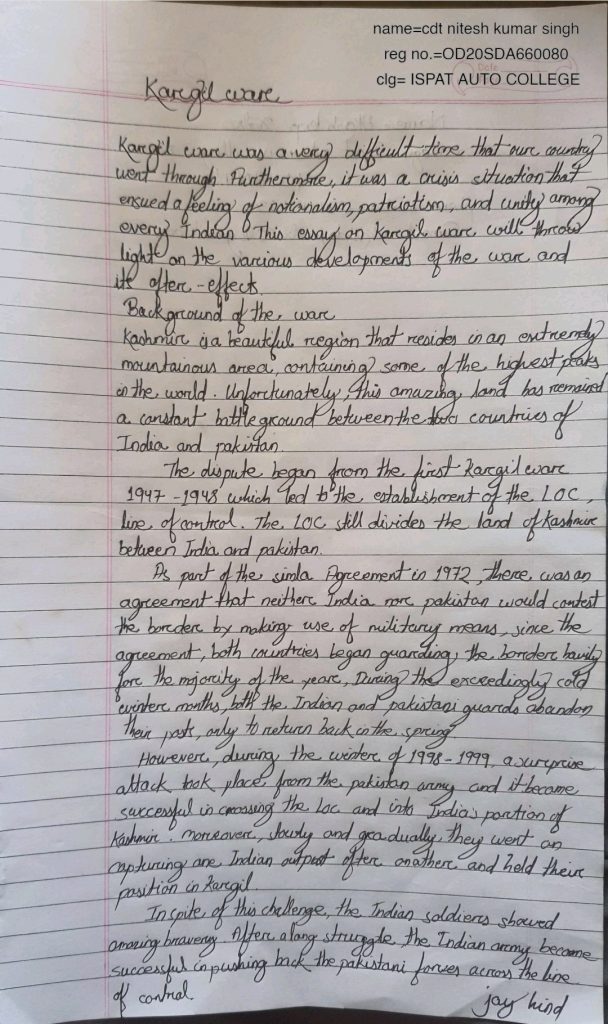 name=cdt nitesh kumar singh
reg no.=OD20SDA660080
clg= ISPAT AUTO COLLEGE
Karegil ware
Karegil ware was a very difficult time that oure country
went through. Furtheremore, it was a crisis situation that
ensued a feeling of nationalism, patriotism, and unity among
every Indian. This essay on Karegil ware will throw
light on the various developments of the ware and
its aftere-effects.
Background of the ware
Kashmire is a beautiful region that resides in an extremely
mountainous area, containing some of the highest peaks
in the world. Unfortunately, this amazing land has remained
a constant battleground between the two countries of
India and pakistan.
The dispute began from the first Karegil ware
1947-1948 which led to the establishment of the LOC,
line of control. The LOC still divides the land of Kashmire
between India and pakistan.
As part of the simla Agreement in 1972, there was an
agreement that neithere India nore pakistan would contest
the bordere by making use of military means, since the
agreement, both countries began guarding the bordere havily
fore the majority of the yeare, During the exceedingly cold
wintere months, both the Indian and pakistani guards abandon
their posts, only to return back in the spring
Howevere, during the wintere of 1998-1999, a surprise
attack took place, from the pakistan army and it became
successful in crossing the Loc and into India's portion of
Kashmir. moreovere, slowly and gradually, they went on
capturing one Indian outpost aftere anothere and held their
position in Karegil.
Inspite of this challenge, the Indian soldiers showed
amazing bravery. Aftere a long struggle, the Indian army became
successful in pushing back the pakistani forces across the line
of control.
jay hind